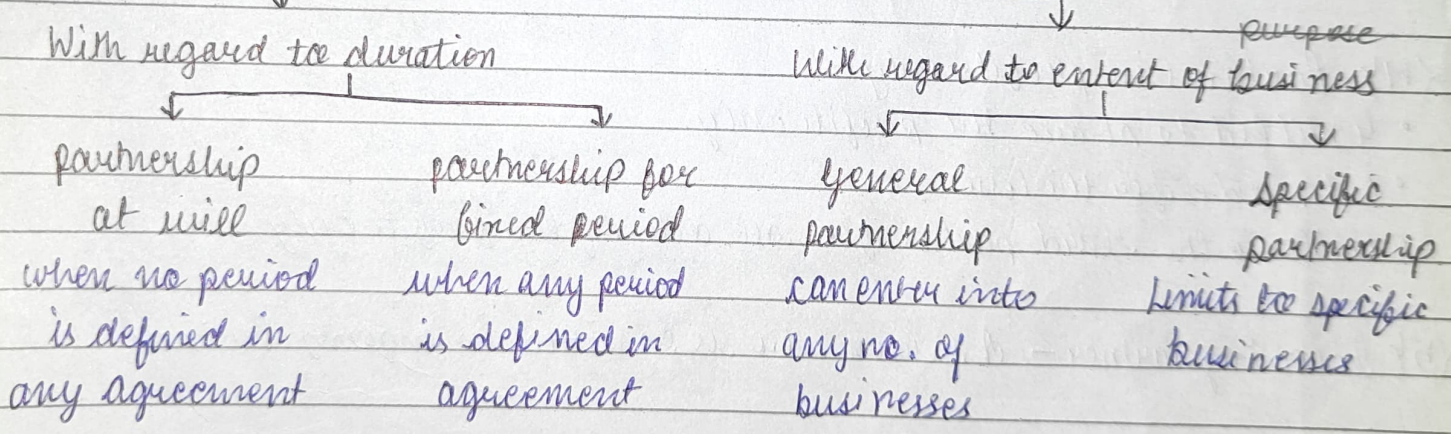 With regard to duration
purpose
With regard to extent of business
partnership
at will
when no period
is defined in
any agreement
partnership for
fixed period
when any period
is defined in
agreement
General
partnership
can enter into
any no. of
businesses
Specific
partnership
Limits to specific
businesses